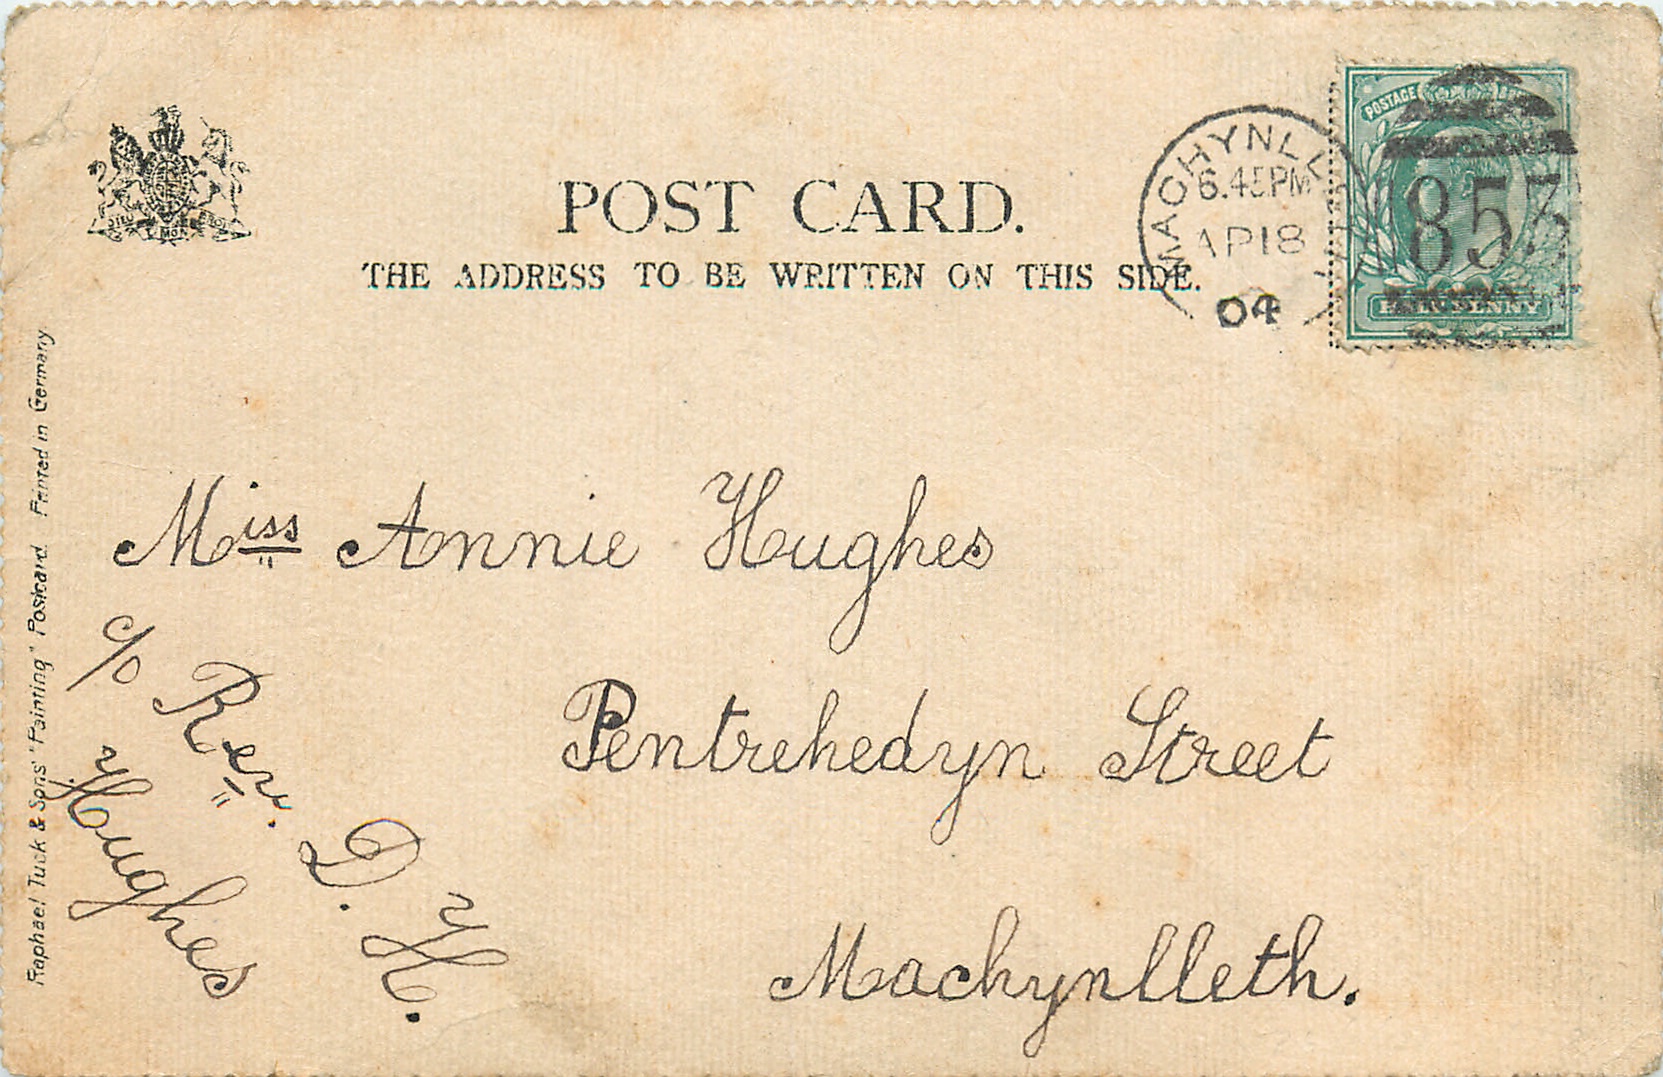 POST CARD.
THE ADDRESS TO BE WRITTEN ON THIS SIDE.
MACHYNLL
6.45PM
AP18
04
POSTAGE
853
HALFPENNY
Miss Annie Hughes
c/o Rev. D. H.
Hughes
Pentrehedyn Street
Machynlleth.
Raphael Tuck & Sons' "Painting" Postcard Printed in Germany